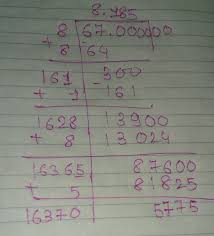 8.185
8 67.000000
+ 8 64
161 - 300
+ 1 161
1628 13900
+ 8 13024
16365 87600
+ 5 81825
16370 5775